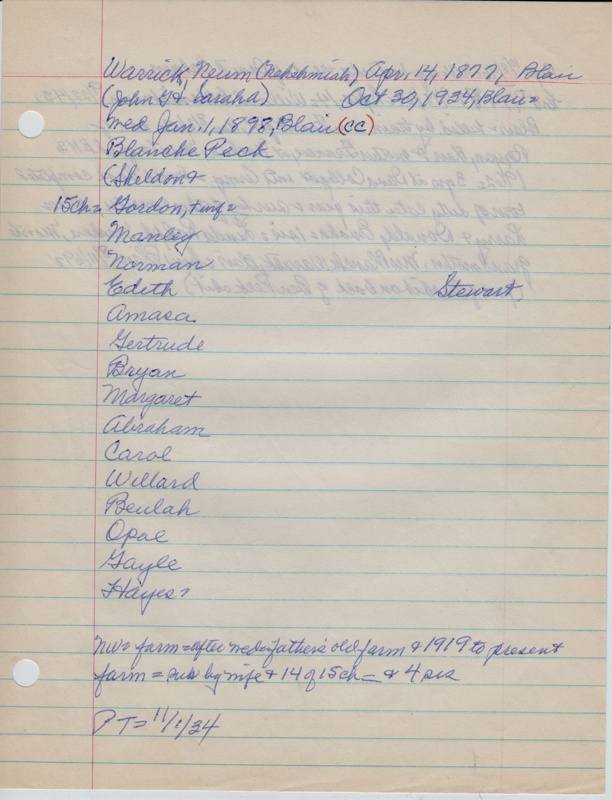 Warrick, Neum (Nehehmiah) Apr. 14, 1877, Blair
(John G & Saraha) Oct 30, 1934, Blair=
wed Jan. 1, 1898, Blair (CC)
Blanche Peck
(Sheldon &
15ch= Gordon, + inf=
Manley
Norman
Edith Stewart
Amasa
Gertrude
Bryan
Margaret
Abraham
Carol
Willard
Beulah
Opal
Gayle
Hayes=
NW= farm= after wed= father's old farm & 1919 to present
farm = sur by wife & 14 of 15 ch= & 4 sis
PT= 11/1/34